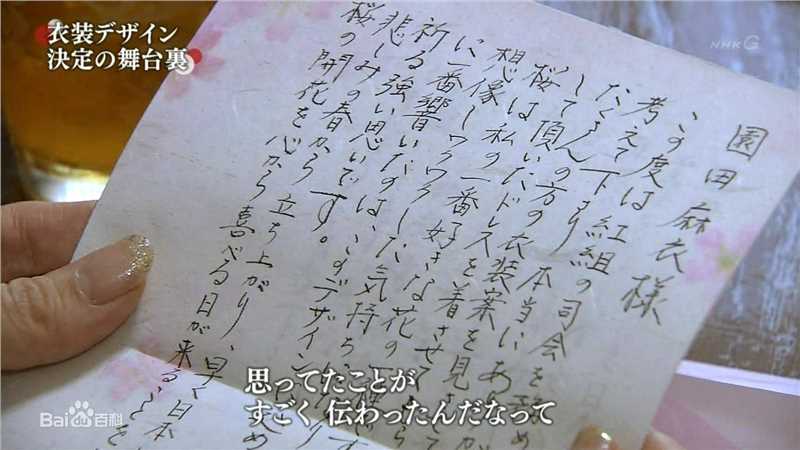 衣装デザイン
決定の舞台裏
NHK G
園田麻衣様
この度は紅組の司会を務め
考えて下さり 本当にあ
たくさんの方の衣装案を見
して頂いたドレスを着させて
桜は私の一番好きな花の
想像しワクワクした気持ち
に一番響いたのは、このデザイン
祈る強い思いです。
悲しみの春から立ち上がり、早く日本
桜の開花を心から喜べる日が来ることを
思ってたことが
すごく 伝わったんだなって
Bai du 百科